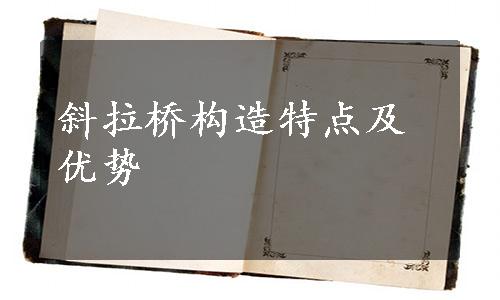 斜拉桥构造特点及
优势